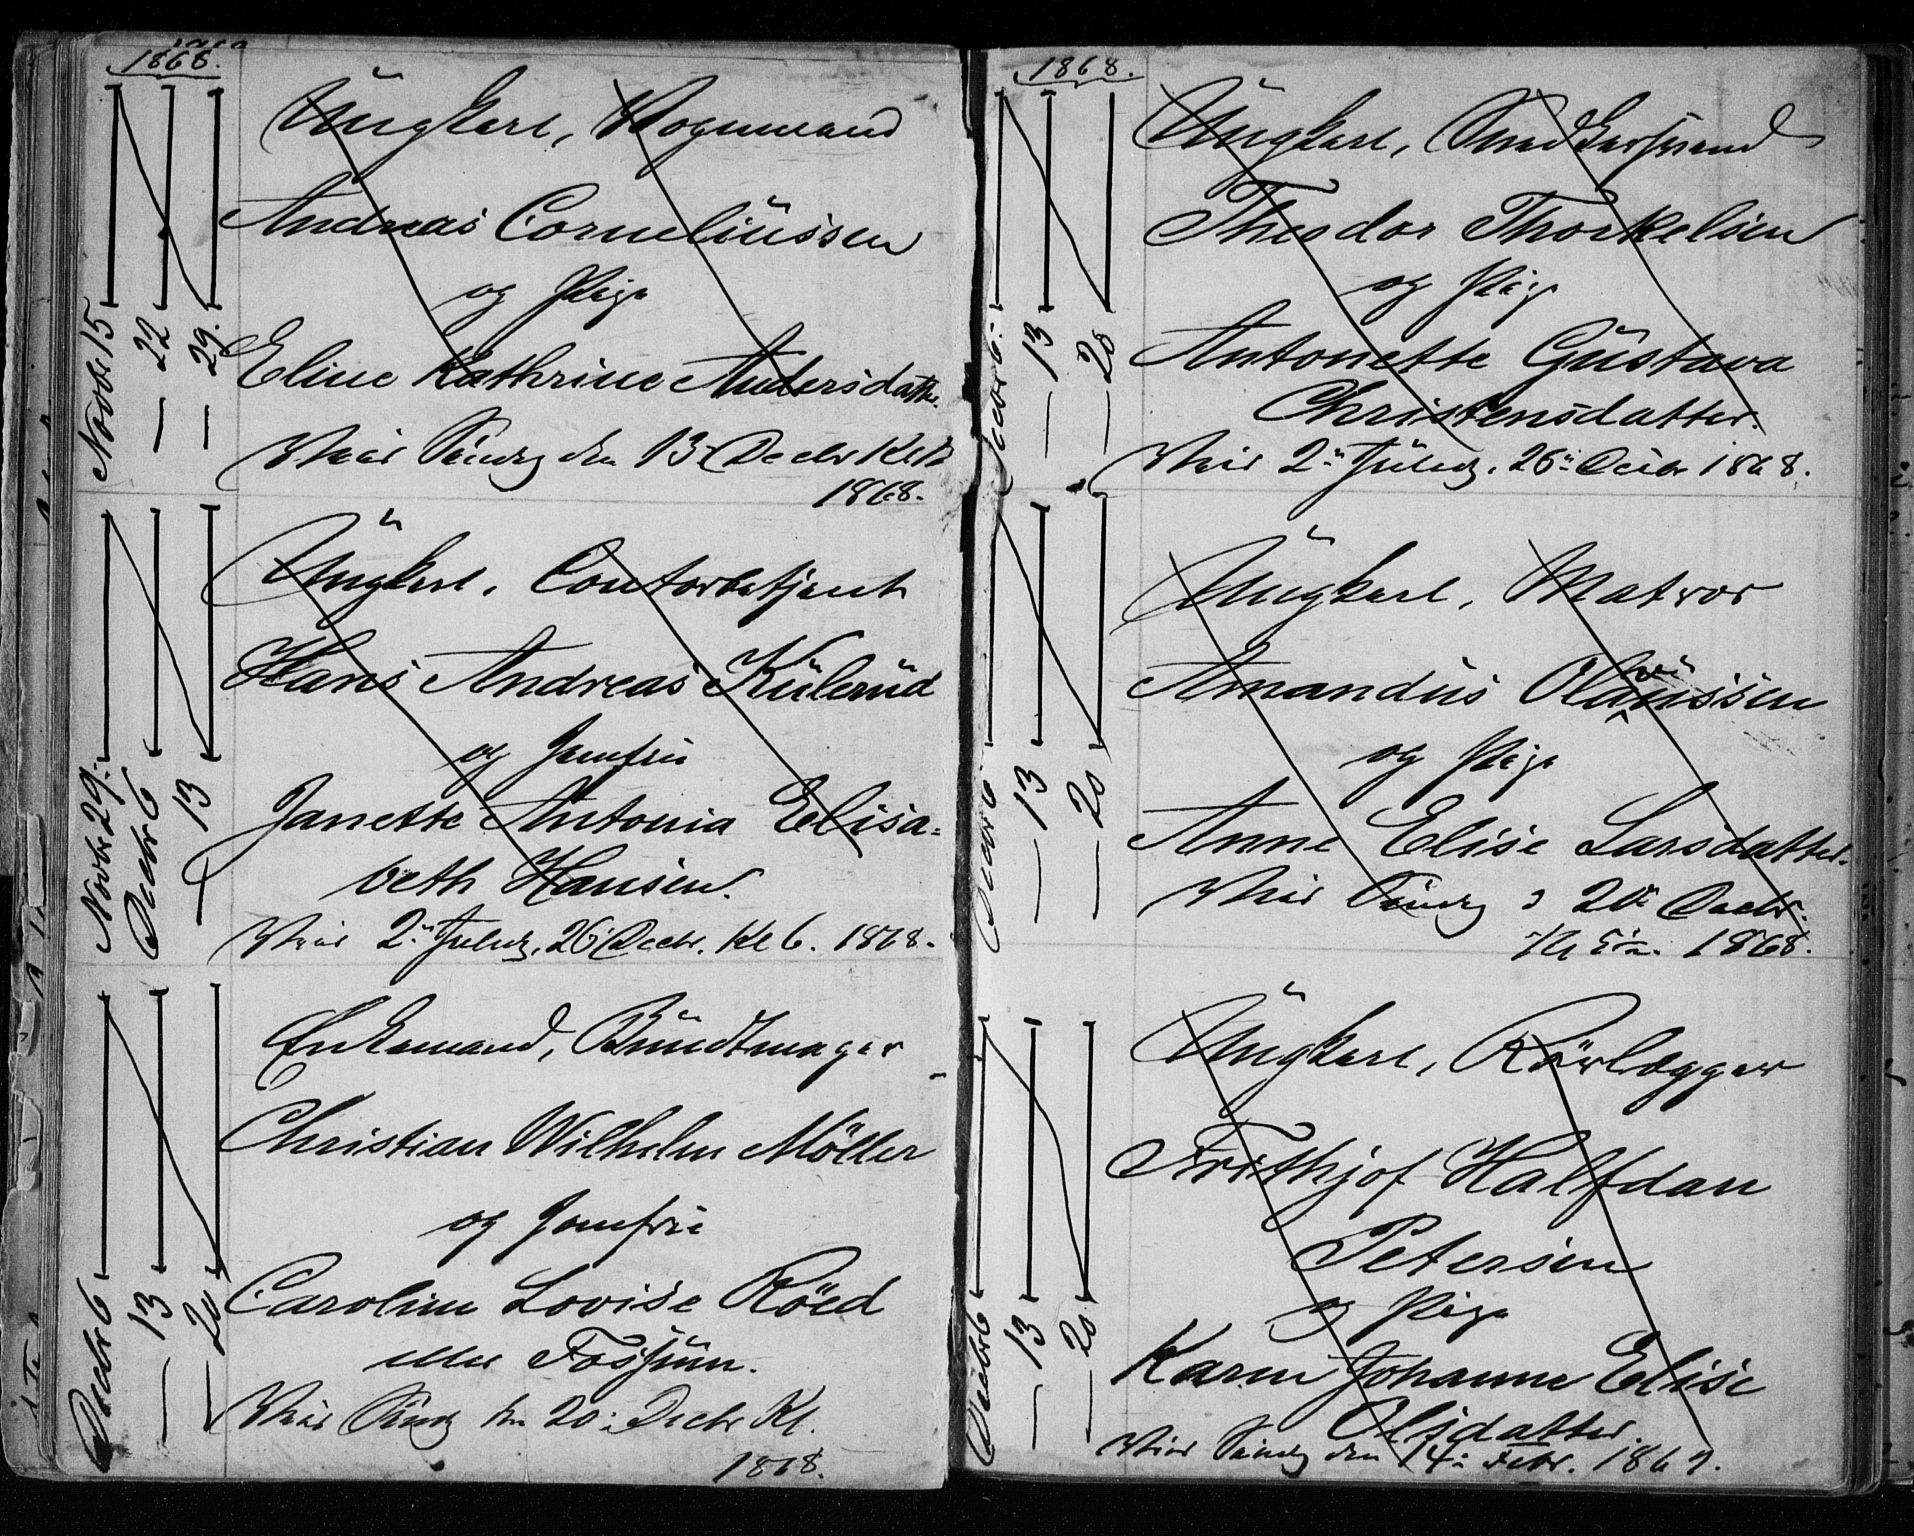 1868.
Novbr 15
— 22
— 29.
Ungkarl, Vognmand
Andreas Corneliussen
og Pige
Eline Kathrine Andersdattr.
Viet Søndg den 13 Decbr Kl.
1868.
Novbr 29.
Decbr 6
— 13
Ungkarl, Contorbetjent
Hans Andreas Kulerud
og Jomfru
Janette Antonia Elisa=
beth Hansen.
Viet 2n Juledg. 26 Decbr. Kl 6. 1868.
Decbr 6
— 13
— 20
Enkemand, Bundtmager
Christian Wilhelm Möller
og Jomfru
Caroline Lovise Röed
eller Fossum.
Viet Søndg den 20 Decbr Kl.
1868.
1868.
Decbr 6
— 13
— 20
Ungkarl, Snedkersvend
Theodor Thorkelsen
og Pige
Antonette Gustava
Christensdatter.
Viet 2n Juledg. 26 Decbr 1868.
Decbr 6
— 13
— 20
Ungkarl, Matros
Amandus Olaussen
og Pige
Anne Elise Larsdatter.
Viet Søndg d 20 Decbr.
Kl 5 1868.
Decbr 6
— 13
— 20
Ungkarl, Rörlægger
Frithjof Halfdan
Petersen
og Pige
Karen Johanne Elise
Olsdatter.
Viet Søndg den 14 Febr. 1869.